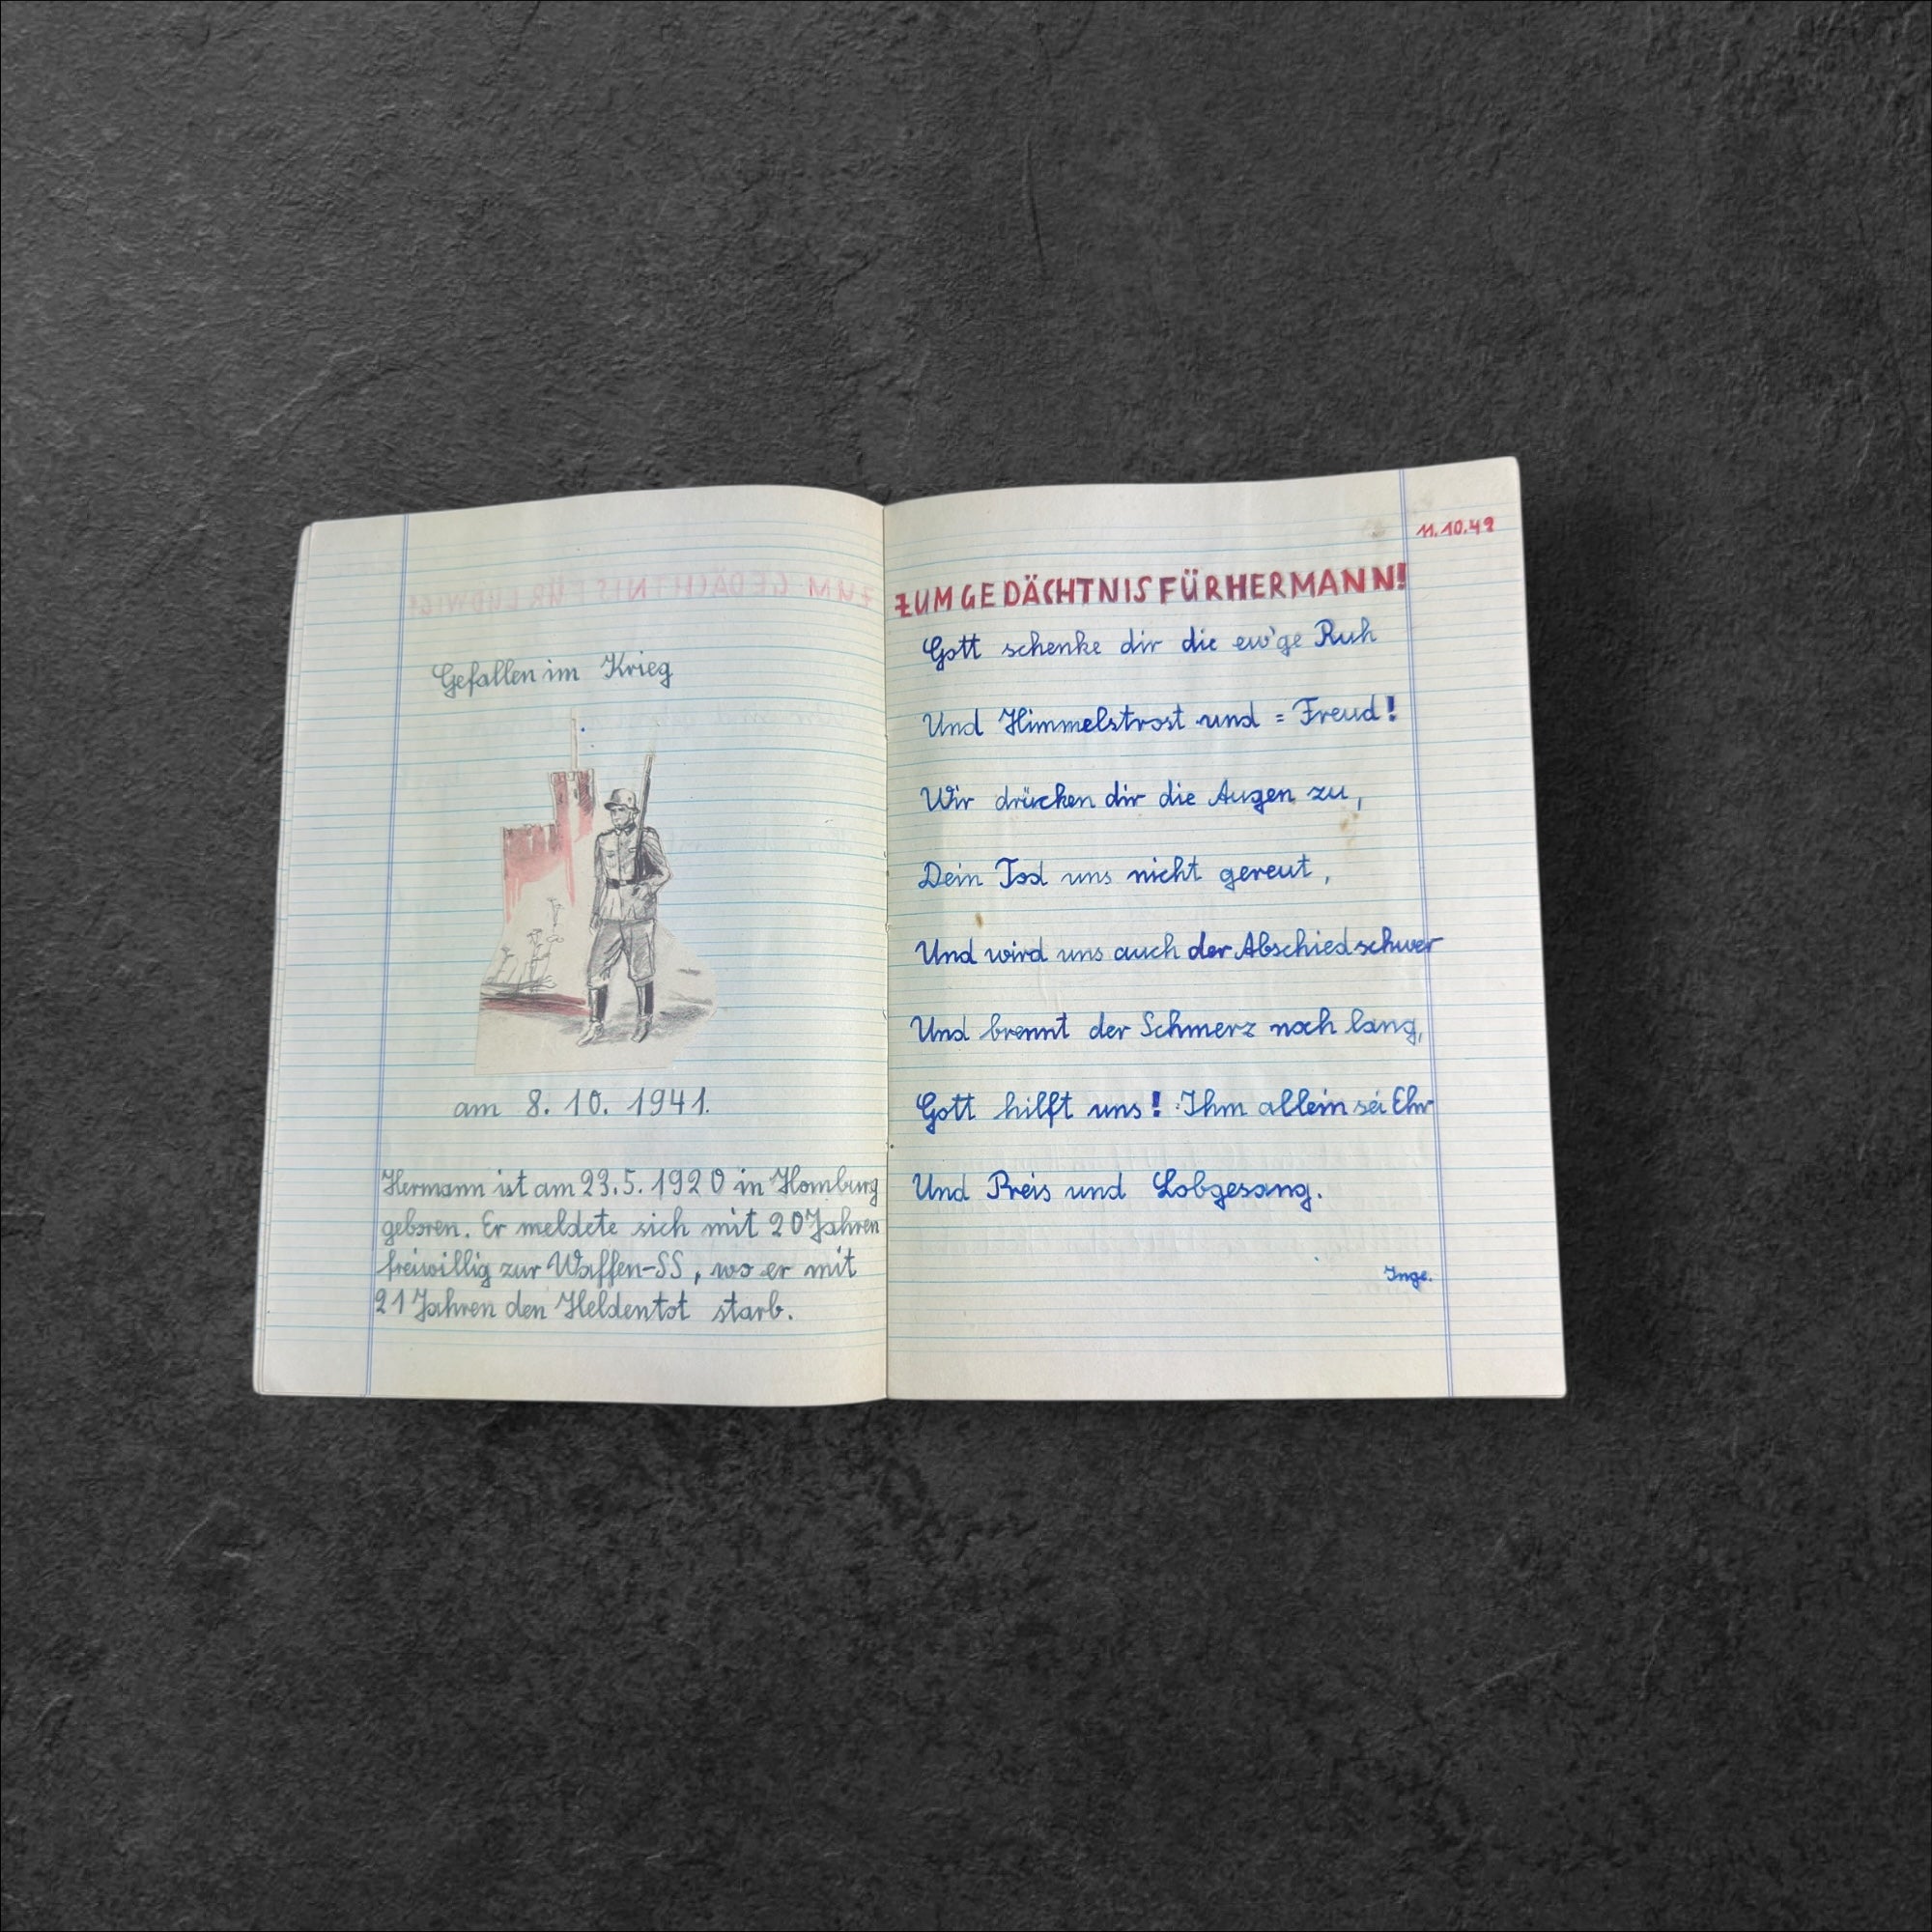 Gefallen im Krieg
am 8. 10. 1941.
Hermann ist am 23. 5. 1920 in Homburg
geboren. Er meldete sich mit 20 Jahren
freiwillig zur Waffen-SS, wo er mit
21 Jahren den Heldentot starb.
11.10.49
ZUM GEDÄCHTNIS FÜR HERMANN!
Gott schenke dir die ew'ge Ruh
Und Himmelstrost und = Freud!
Wir drücken dir die Augen zu,
Dein Tod uns nicht gereut,
Und wird uns auch der Abschied schwer
Und brennt der Schmerz noch lang,
Gott hilft uns! Ihm allein sei Ehr
Und Preis und Lobgesang.
Inge.